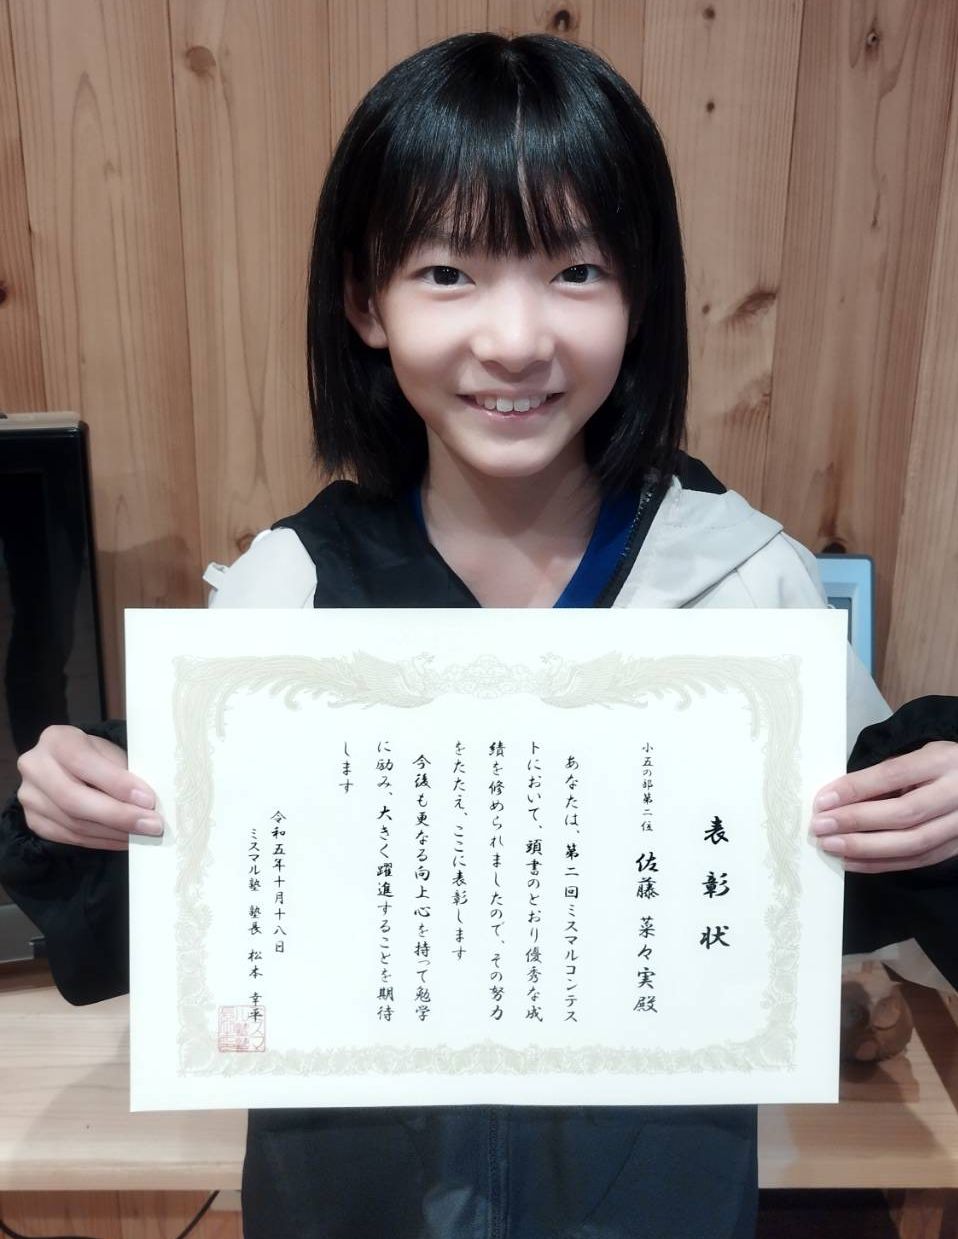 表彰状
小五の部第二位
佐藤 菜々実 殿
あなたは、第二回ミスマルコンテス
トにおいて、頭書のとおり優秀な成
績を修められましたので、その努力
をたたえ、ここに表彰します
今後も更なる向上心を持って勉学
に励み、大きく躍進することを期待
します
令和五年十月十八日
ミスマル塾 塾長 松本 幸平